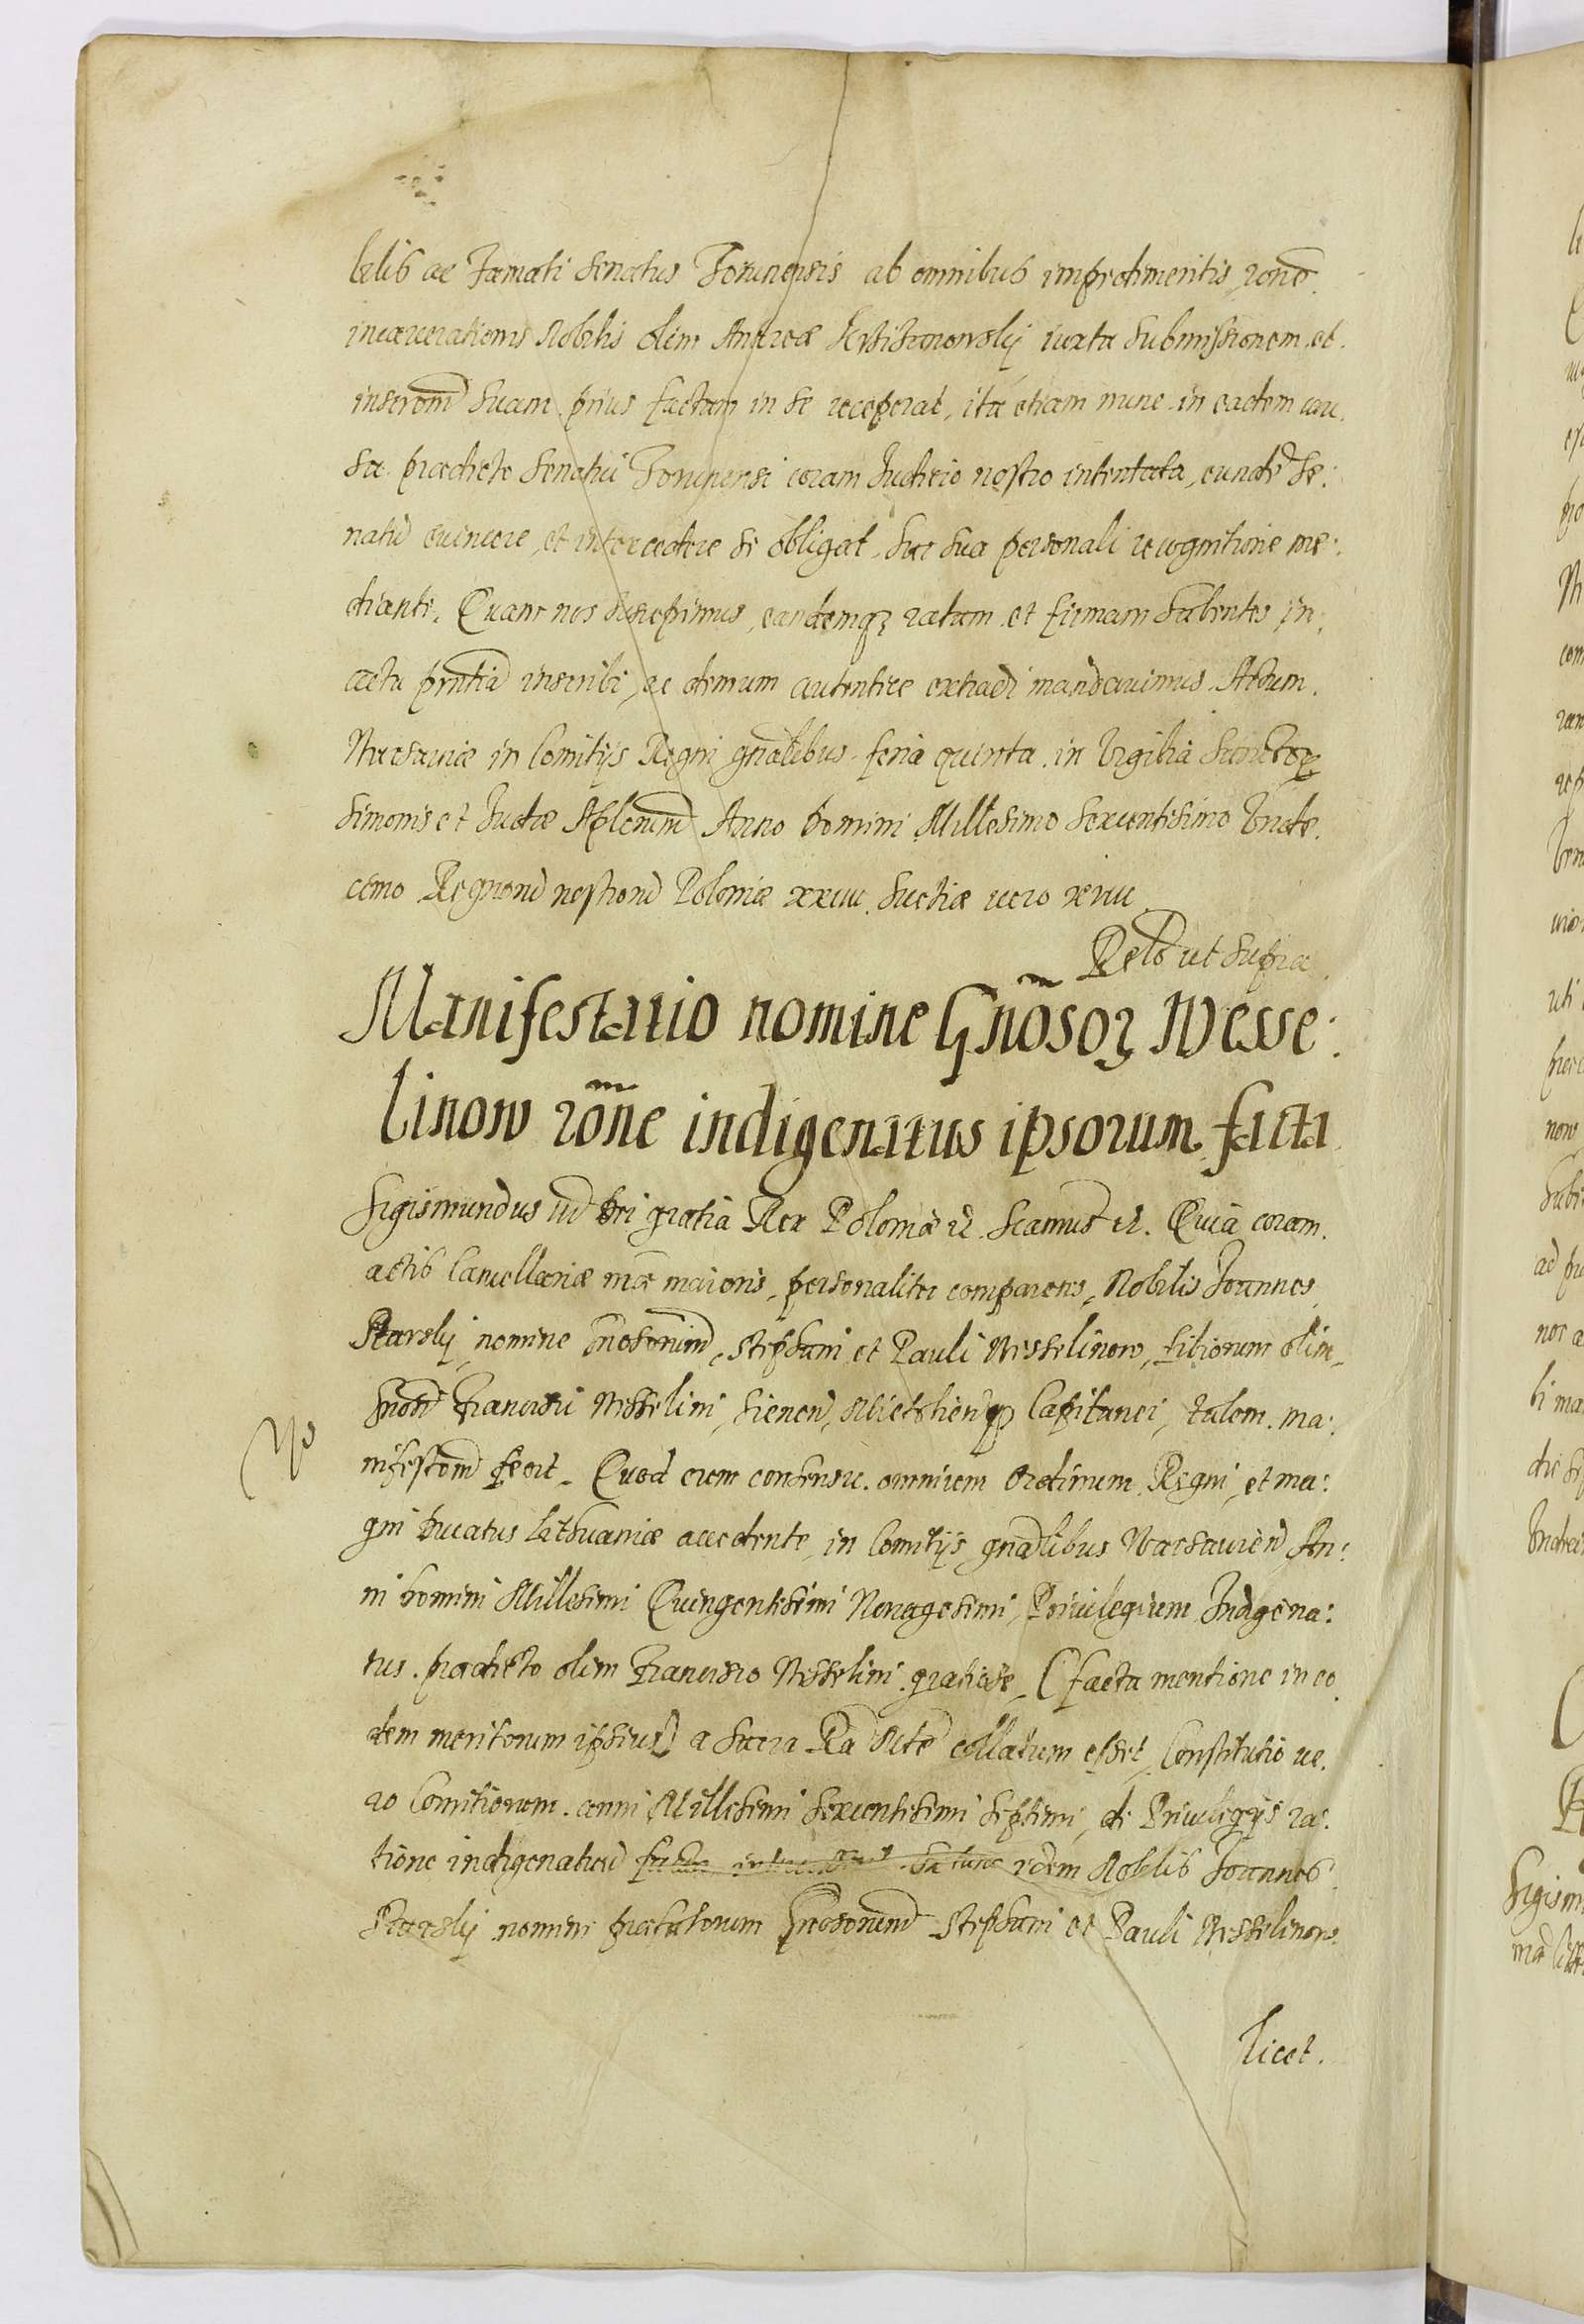 bilis ac Famati Senatus Torunensis ab omnibus impedimentis, rõne
incarcerationis Nobilis olim Andreæ iuxta submissionem et
inscrõnem suam prius factam in se receperat, ita etiam nunc in eadem cau
sa prædicto Senatui Torunensi coram Iudicio nostro intentata, eundẽ Se:
natũ evincere, et intercedere se obligat, hac sua personali recognitione me:
diante. Quam nos suscepimus, eandemq3 ratam et firmam habentes in
acta pñtia inscribi, ac demum autentice extradi mandavimus. Actum
Warsaviæ in Comitijs Regni gñalibus feria quinta in Vigilia Sanctor
Simonis et Iudæ Aplorum Anno Domini Millesimo Sexcentesimo Unde
cimo Regnorũ nostrorũ Poloniæ xxiiii Suetiæ vero xviii
Relõ ut supra
Manifestatio nomine Gñosor3 Wesse:
linow rõne indigenatus ipsorum facta
Sigismundus iii Dei gratia Rex Poloniæ &. Scamus &. Quia coram
actis Cancellariæ nræ maioris, personaliter comparens, Nobilis Joannes
nomine Gnosorum, Stephani et Pauli Wesselinow, filiorum olim
Gnosi Francisci Wesselini, Capitanei, talem ma:
nifestõm fecit. Quod cum consensu omnium Ordinum Regni, et ma:
gni Ducatus Lithuaniæ accedente, in Comitijs gñalibus Warsavien An:
ni Domini Millesimi Quingentesimi Nonagesimi, Privilegium Indigena:
tus prædicto olim Francisco Wesselini gratiose, (facta mentione in eo
dem meritorum ipsius) a Sacra Ra Mte collatum esset, Constitutio ve
ro Comitiorum anni Millesimi Sexcentesimi Septimi, de Privilegijs ra:
tione indigenatus idem Nobilis Joannes
nomine præfatorum Gnosorum Stephani et Pauli Wesselinow
licet.